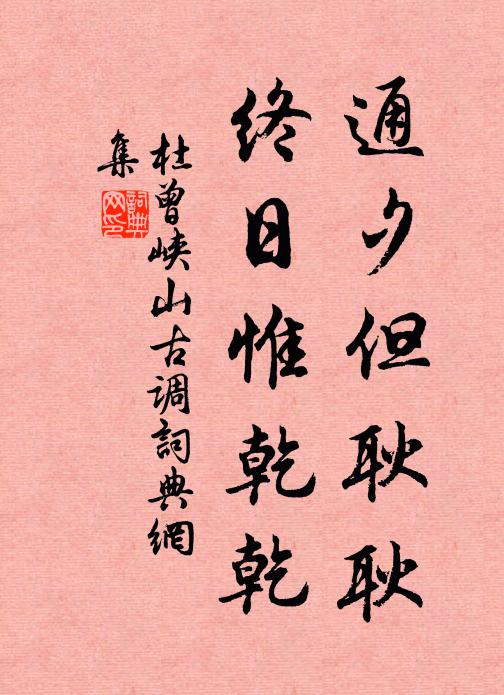 通夕但耿耿
終日惟乾乾
杜曾峽山古調詞典網
集
詞典
网印